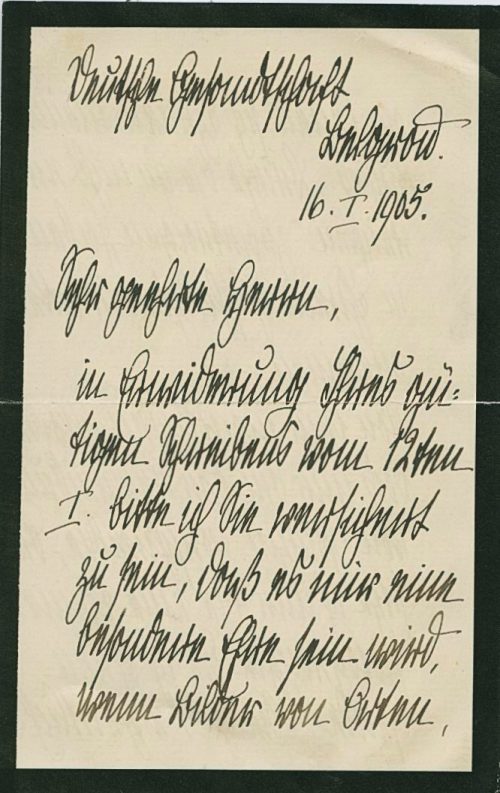 Deutsche Gesandtschaft
Belgrad.
16. I. 1905.
Sehr geehrte Herrn,
in Erwiderung Ihres gü=
tigen Schreibens vom 12ten
I. bitte ich Sie versichert
zu sein, daß es mir eine
besondere Ehre sein wird,
wenn Bilder von Orten,